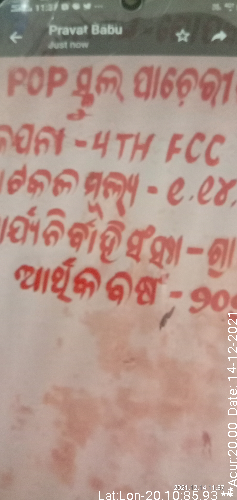 11:37
Pravat Babu
Just now
POP ସ୍କୁଲ ପାଚେରୀ
- 4TH FCC
ମୂଲ୍ୟ - ୧.୧୪
ନିର୍ବାହି ସଂସ୍ଥା - ଗ୍ରା
ଆର୍ଥିକ ବର୍ଷ - ୨୦
Lat:Lon-20.10:85.93 ***Acur:20.00, Date: 14-12-2021